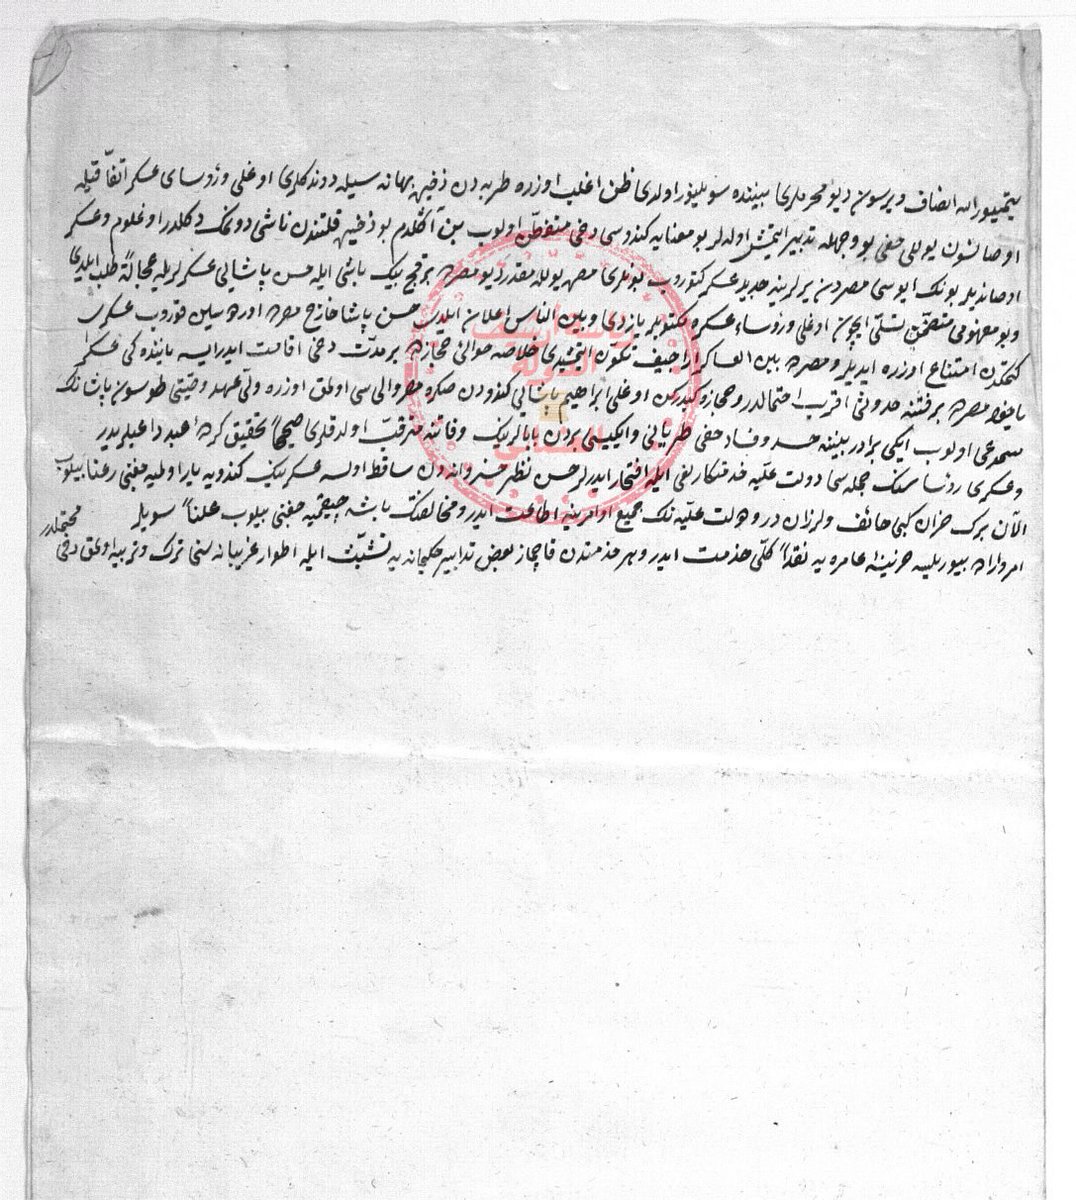 ایتمیور الله انصاف ویرسون دیو محرملری بیننده سویلیور اولدی ظن اغلب اوزره طربه دن ذخیره بهانه سیله دوندکلری اوغلی ورؤسای عسکر اتفاق قیله
اوصانسون یوللی خفی بو وجهله تدبیر ایتمش اولدلر بو معنایه کندوسی دخی متفطن اولوب بن آکلدم بو ذخیره قلتندن ناشی دونمک دکلدر اوغلوم وعسکر
اوصاندیلر بونک ایوسی مصردن یرلرینه جدید عسکر کتوروب بونلری مصره یوللامقدر دیو مصره برقچ بیک باشی ایله حسن پاشالی عسکرلریله عجالة طلب ایلدی
وبو مفهومی متضمن تسلی ایچون اوغلی ورؤساء عسکره مکتوبلر یازدی وبین الناس اعلان ایلدی حسن پاشا خارج مصره اردو سین قوروب عسکری
کتمکدن امتناع اوزره ایدیلر ومصرده بین العساکر اراجیف تکون ایتمشیدی خلاصه حوالئ حجازده بر مدت دخی اقامت ایدرایسه یاننده کی عسکر
یاخود مصرده بر فتنه حدوثی اقرب احتمالدر وحجازه کیدرکن اوغلی ابراهیم پاشالی کندودن صکره مصر والی سی اولمق اوزره ولی عهد وصیتی طوسون پاشانک
مسموعی اولوب ایکی برادر بیننه حسد وفساد خفی طریانی وایکیسی بردن بابالرینک وفاتنه مترقب اولدقلری صحیحا تحقیق کرده عبد داعیلریدر
وعسکری رؤساسنک جمله سی دولت علیه خدمتکارلغی ایله افتخار ایدرلر حسن نظر خسرواندن ساقط اولسه عسکرینک کندویه یار اولمیه جغنی رعنا بیلوب
الآن برک خزان کبی خائف ولرزان در ودولت علیه نک جمیع اوامرینه اطاعت ایدر ومخالفتک باشه چیقمیه جغنی بیلوب علنا سویلر
امر واراده بیوریلسه خزینه عامره یه نقدا کلی خدمت ایدر وهر خدمتدن قاچماز بعض تدابیر حکیمانه یه تشبث ایله اطوار غریبانه سنی ترک وتربیه اولمق دخی
محتملدر